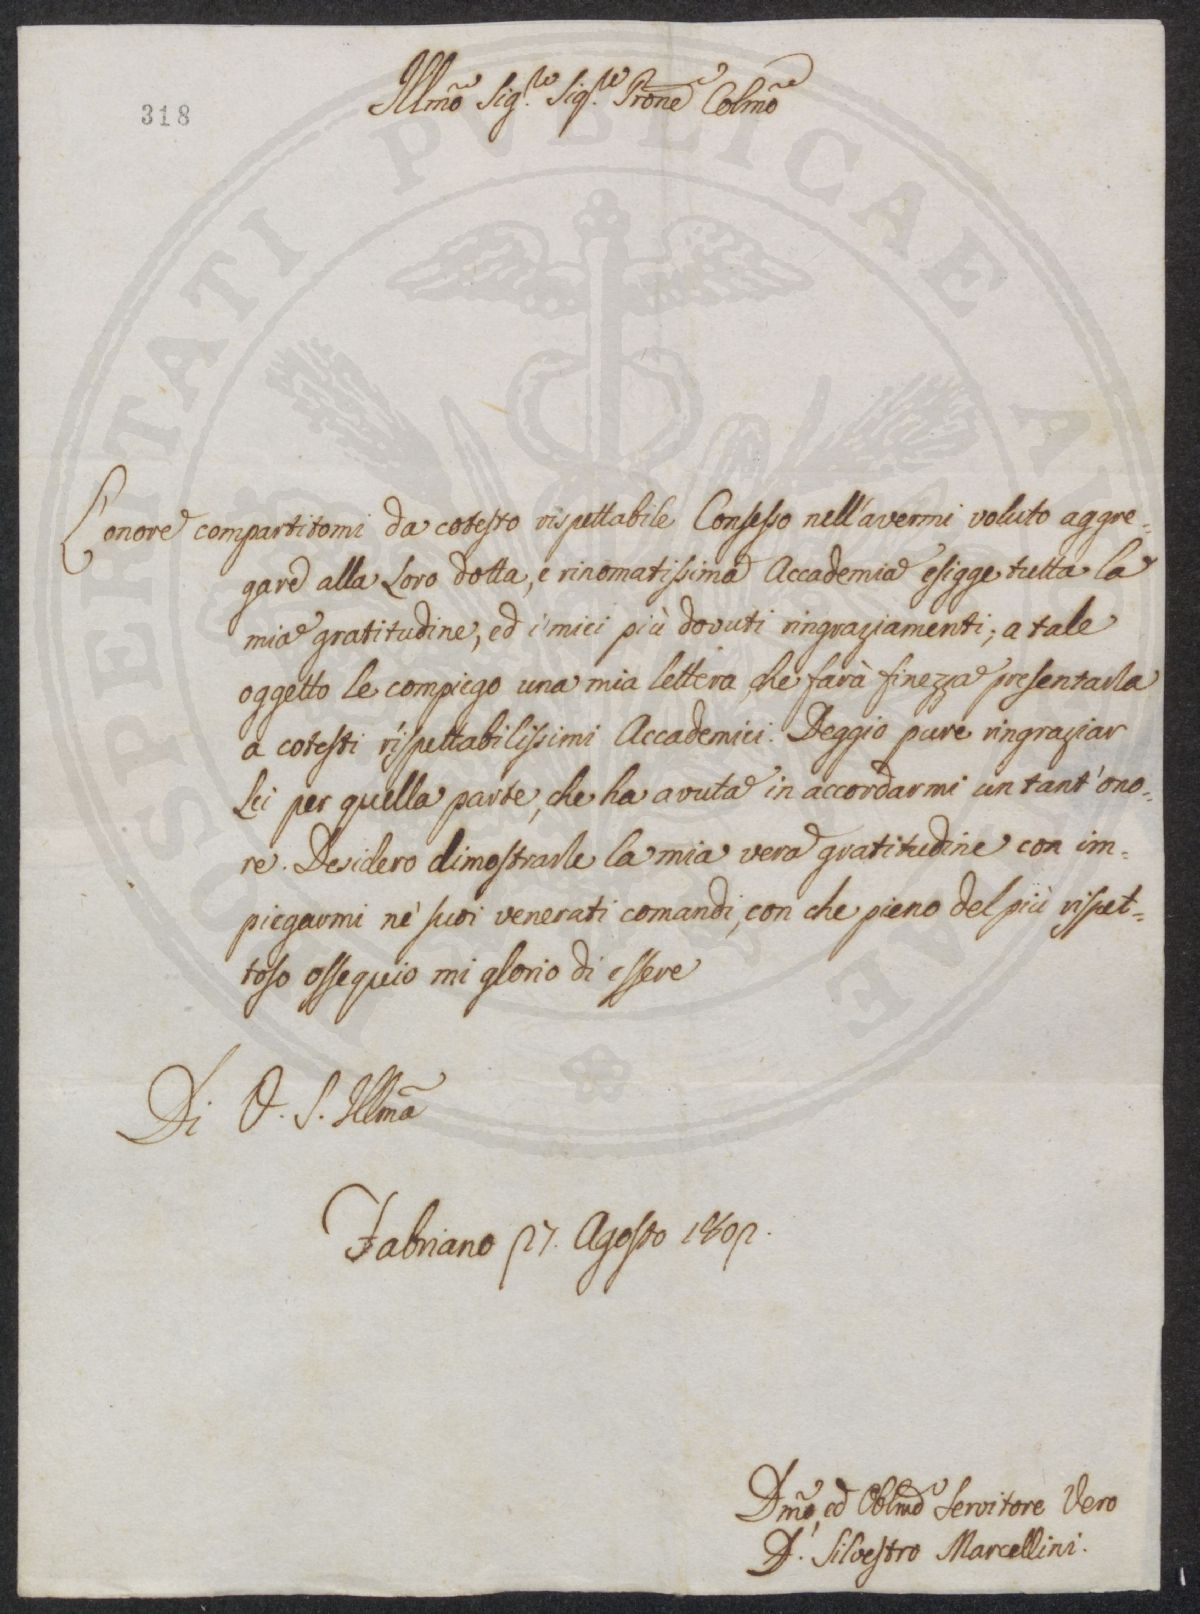 318
Illmo Sig.re Sig.re Prone Colmo
L'onore compartitomi da cotesto rispettabile Consesso nell'avermi voluto aggre=
gare alla Loro dotta, e rinomatissima Accademia esigge tutta la
mia gratitudine, ed i miei più dovuti ringraziamenti; a tale
oggetto le compiego una mia lettera, che farà finezza presentarla
a cotesti rispettabilissimi Accademici. Deggio pure ringraziar
Lei per quella parte, che ha avuta in accordarmi un tant'ono=
re. Desidero dimostrarle la mia vera gratitudine con im=
piegarmi ne' suoi venerati comandi, con che pieno del più rispet=
toso ossequio mi glorio di essere
Di V. S. Illma
Fabriano 27. Agosto 1802.
Dmo, ed Oblmo Servitore Vero
D. Silvestro Marcellini.
PROSPERITATI PVBLICAE AVGENDAE